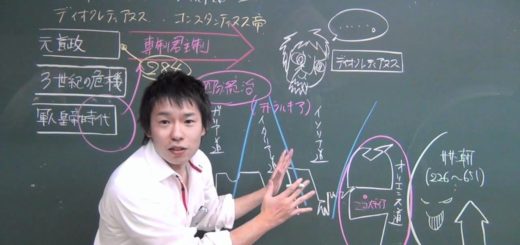 ディオクレティアヌス・・コンスタンティヌス帝
元首政
専制君主制
284
3世紀の危機
軍人皇帝時代
(テトラルキア)
・・・・・
ディオクレティアヌス
ガリア道
イタリア道
イリリア道
オリエンス道
ニコメディア
(226~651)